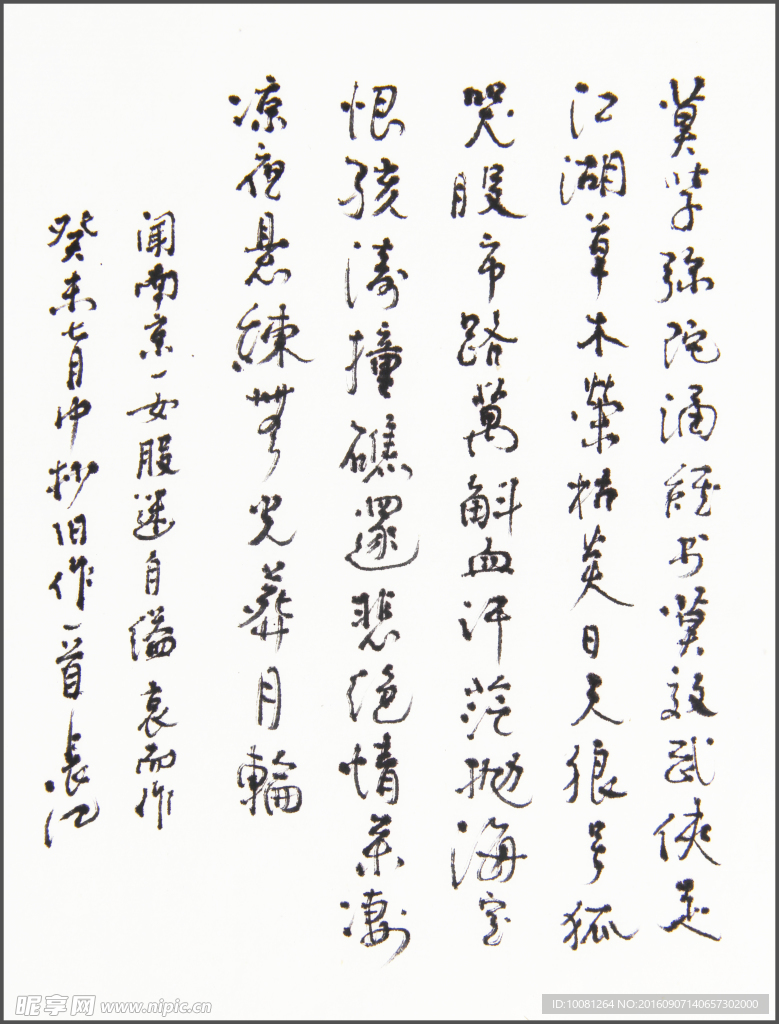 莫学弥陀诵经书莫效武侠走
江湖草木榮枯炎日天狼号狐
哭股市路萬斛血汗茫抛海空
恨孩涛撞礁還悲绝情凄
凉夜悬練無光葬月輪
闻南京一女股迷自缢哀而作
癸未七月中抄旧作一首長江
昵享网 www.nipic.cn
ID:10081264 NO:20160907140657302000